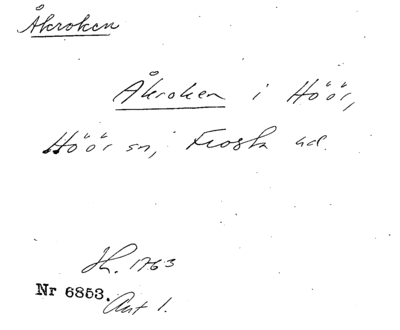 Åkroken
Åkroken i Höör,
Höör sn, Frosta hd.
Sk. 1763
Nr 6853. Akt 1.